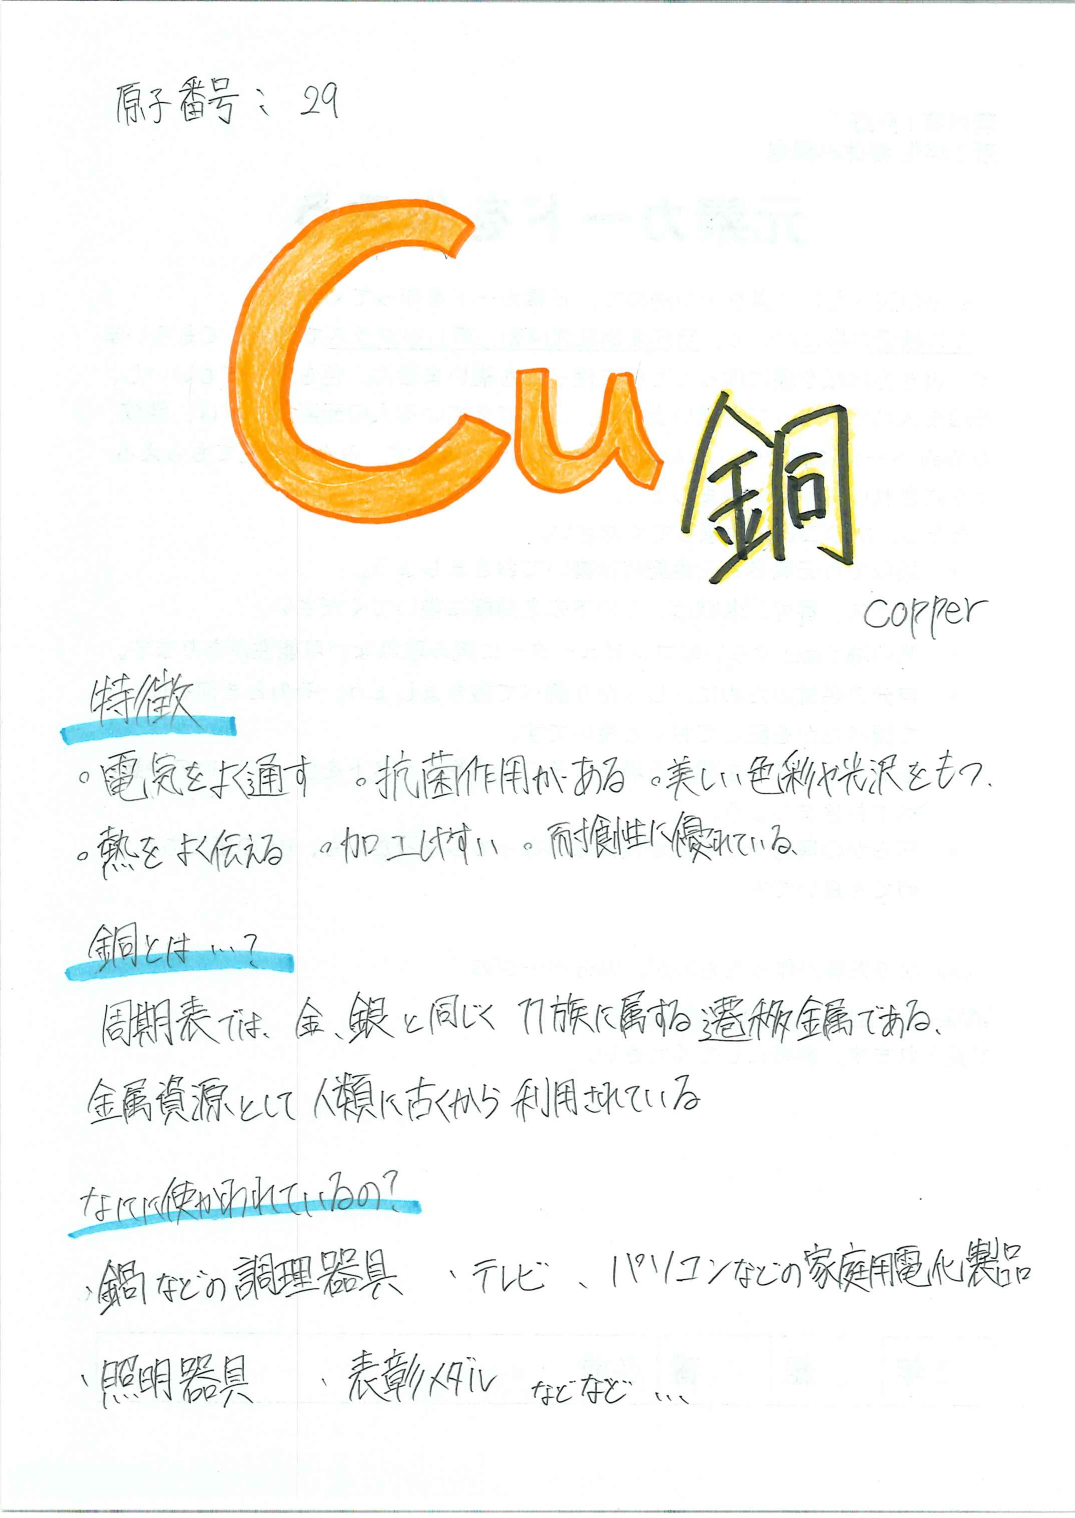 原子番号: 29
Cu
銅
copper
特徴
。電気をよく通す 。抗菌作用がある 。美しい色彩や光沢をもつ、
。熱をよく伝える 。加工しやすい 。耐食性に優れている、
銅とは…?
周期表では、金、銀と同じく11族に属する遷移金属である、
金属資源として人類に古くから利用されている
なにに使かわれているの?
、鍋などの調理器具 、テレビ、パソコンなどの家庭用電化製品
、照明器具 、表彰メダル などなど…